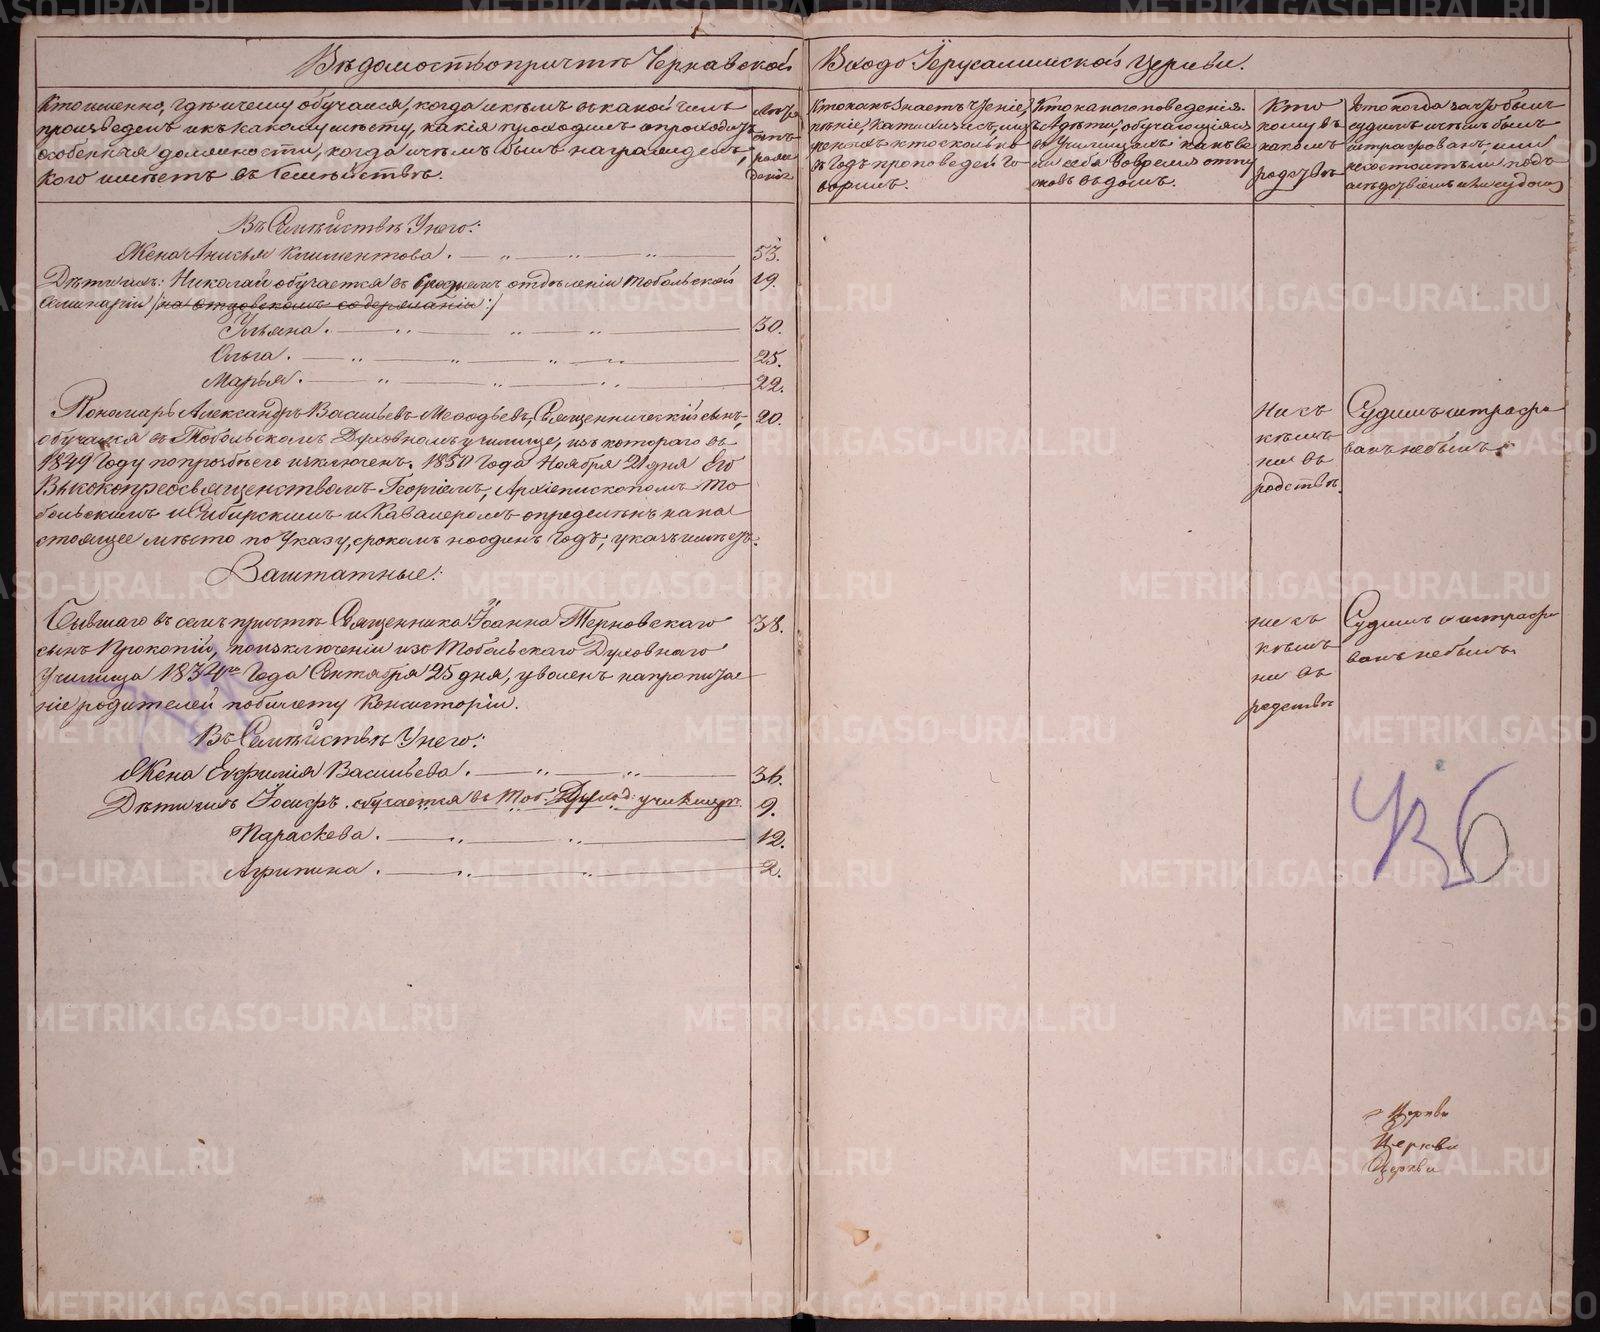 Вѣдомость о причтѣ Чернавской Входо Іерусалимской церкви.
Кто именно, гдѣ и чему обучался, когда и кѣмъ въ какой чинъ
произведенъ и къ какому мѣсту, какія проходилъ и проходитъ
особенныя должности, когда и чѣмъ былъ награжденъ,
кого имѣетъ въ Семействѣ.
Лѣта
отъ
рожде
денія
Кто какъ знаетъ чтеніе,
пѣніе, катихизисъ, из
кто сколько
въ годъ проповѣдей го
ворилъ.
Кто какого поведенія
и дѣти, обучающіяся
въ Училищахъ какъ ве
ли себя во время отпу
сковъ въ домъ.
Кто
кому въ
какомъ
родствѣ
Кто когда за что былъ
судимъ и чѣмъ былъ
штрафованъ или
не состоитъ ли подъ
слѣдствіемъ или судомъ
Въ Семействѣ у него:
Жена Анисья Климентова. 53.
Дѣти ихъ: Николай обучается въ Среднемъ отдѣленіи Тобольской 19.
Семинаріи /на отцовскомъ содержаніи:/
Ульяна. 30.
Ольга. 25.
Марья. 22.
Пономарь Александръ Васильевъ Меѳодьевъ, Священническій сынъ, 20.
обучался въ Тобольскомъ Духовномъ училище, изъ котораго въ
1849 году по прозбѣ его изключенъ. 1850 года Ноября 21 дня Его
Высокопреосвященствомъ Георгіемъ, Архіепископомъ То
больскимъ и Сибирскимъ и Кавалеромъ опредѣленъ на на
стоящее мѣсто по указу, срокомъ на одинъ годъ, указъ имѣетъ.
Ни съ
кѣмъ
ни въ
родствѣ.
Судимъ и штрафо
ванъ не былъ.
Заштатные:
Бывшаго въ семъ причтѣ Священника Іоанна Терновскаго 38.
сынъ Прокопій, по изключеніи изъ Тобольскаго Духовнаго
Училища 1834го года Сентября 25 дня, уволенъ на пропитае
ніе родителей по билету Консисторіи.
ни съ
кѣмъ
ни въ
родствѣ
Судимъ и штрафо
ванъ не былъ.
Въ Семействѣ у него:
Жена Евфимія Васильева. 36.
Дѣти ихъ Іосифъ. обучается въ Тоб. Духов: училищѣ. 9.
Параскева. 12.
Агрипина. 2.
Церкви
Церкви
Церкви
METRIKI.GASO-URAL.RU